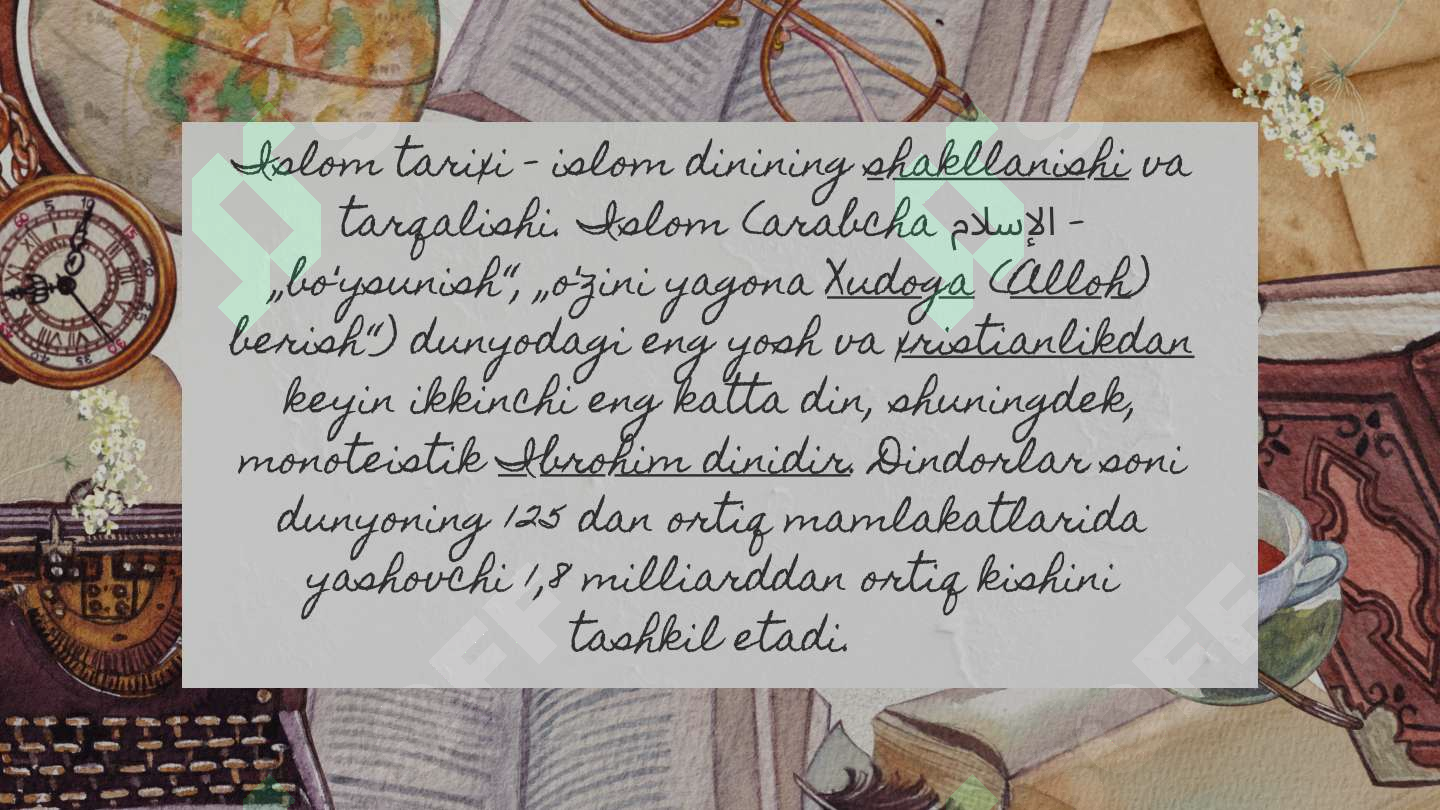 Islom tarixi - islom dinining shakllanishi va
tarqalishi. Islom (arabcha الإسلام -
„bo'ysunish“, „o'zini yagona Xudoga (Alloh)
berish“) dunyodagi eng yosh va xristianlikdan
keyin ikkinchi eng katta din, shuningdek,
monoteistik Ibrohim dinidir. Dindorlar soni
dunyoning 125 dan ortiq mamlakatlarida
yashovchi 1,8 milliarddan ortiq kishini
tashkil etadi.